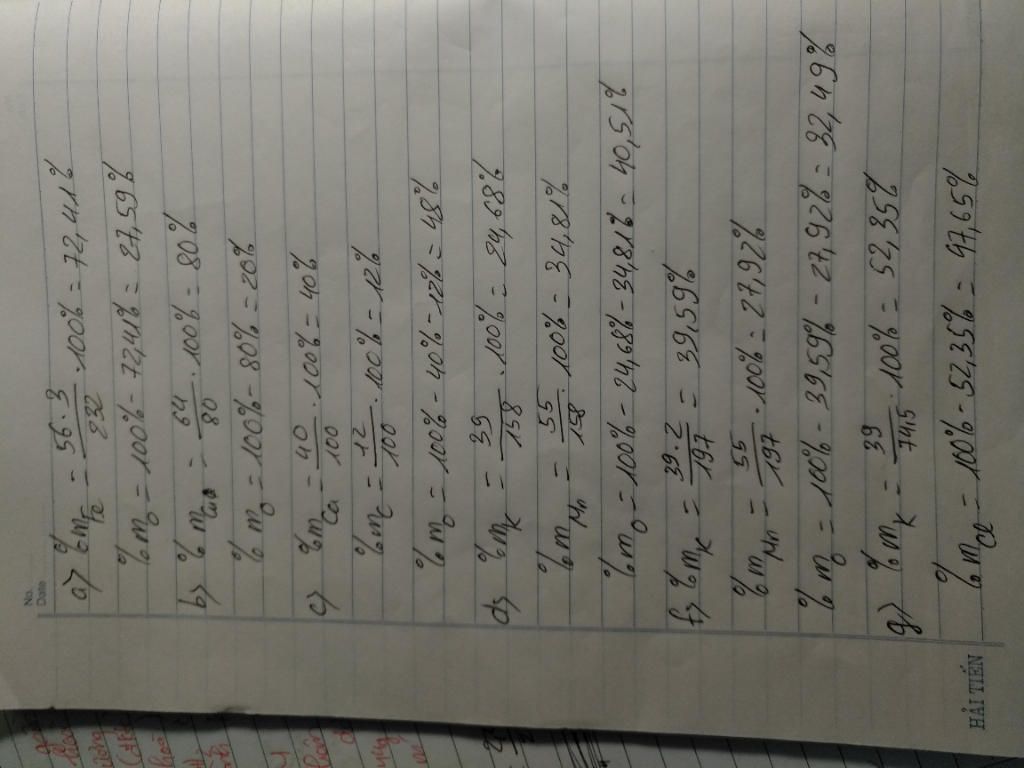 No.
Date
a) %mFe = 56.3/232 . 100% = 72,41%
%mO = 100% - 72,41% = 27,59%
b) %mCu = 64/80 . 100% = 80%
%mO = 100% - 80% = 20%
c) %mCa = 40/100 . 100% = 40%
%mC = 12/100 . 100% = 12%
%mO = 100% - 40% - 12% = 48%
d) %mK = 39/158 . 100% = 24,68%
%mMn = 55/158 . 100% = 34,81%
%mO = 100% - 24,68% - 34,81% = 40,51%
f) %mK = 39.2/197 = 39,59%
%mMn = 55/197 . 100% = 27,92%
%mO = 100% - 39,59% - 27,92% = 32,49%
g) %mK = 39/74,5 . 100% = 52,35%
%mCl = 100% - 52,35% = 47,65%
HẢI TIẾN